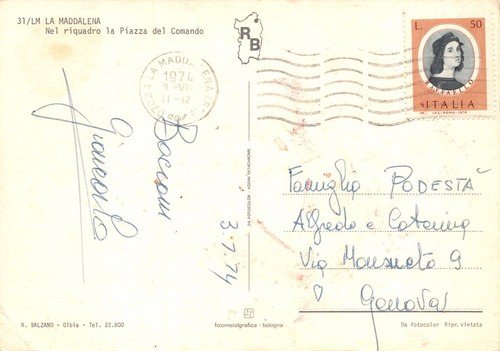 31/LM LA MADDALENA
Nel riquadro la Piazza del Comando
RB
LA MADDALENA
1974
9-VII
11-12
L. 50
RAFFAELLO
ITALIA
I.P.S.-ROMA-1974
Bacioni
Giancarlo
3-7-74
DA FOTOCOLOR KODAK EKTACHROME
Famiglia PODESTÀ
Alfredo e Caterina
Via Monsueto 9
Genova
R. BALZANO - Olbia - Tel. 22.800
fotometalgrafica - bologna
Da fotocolor Ripr. vietata